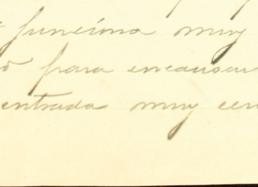 funciona muy
para encausar
entradas muy cen